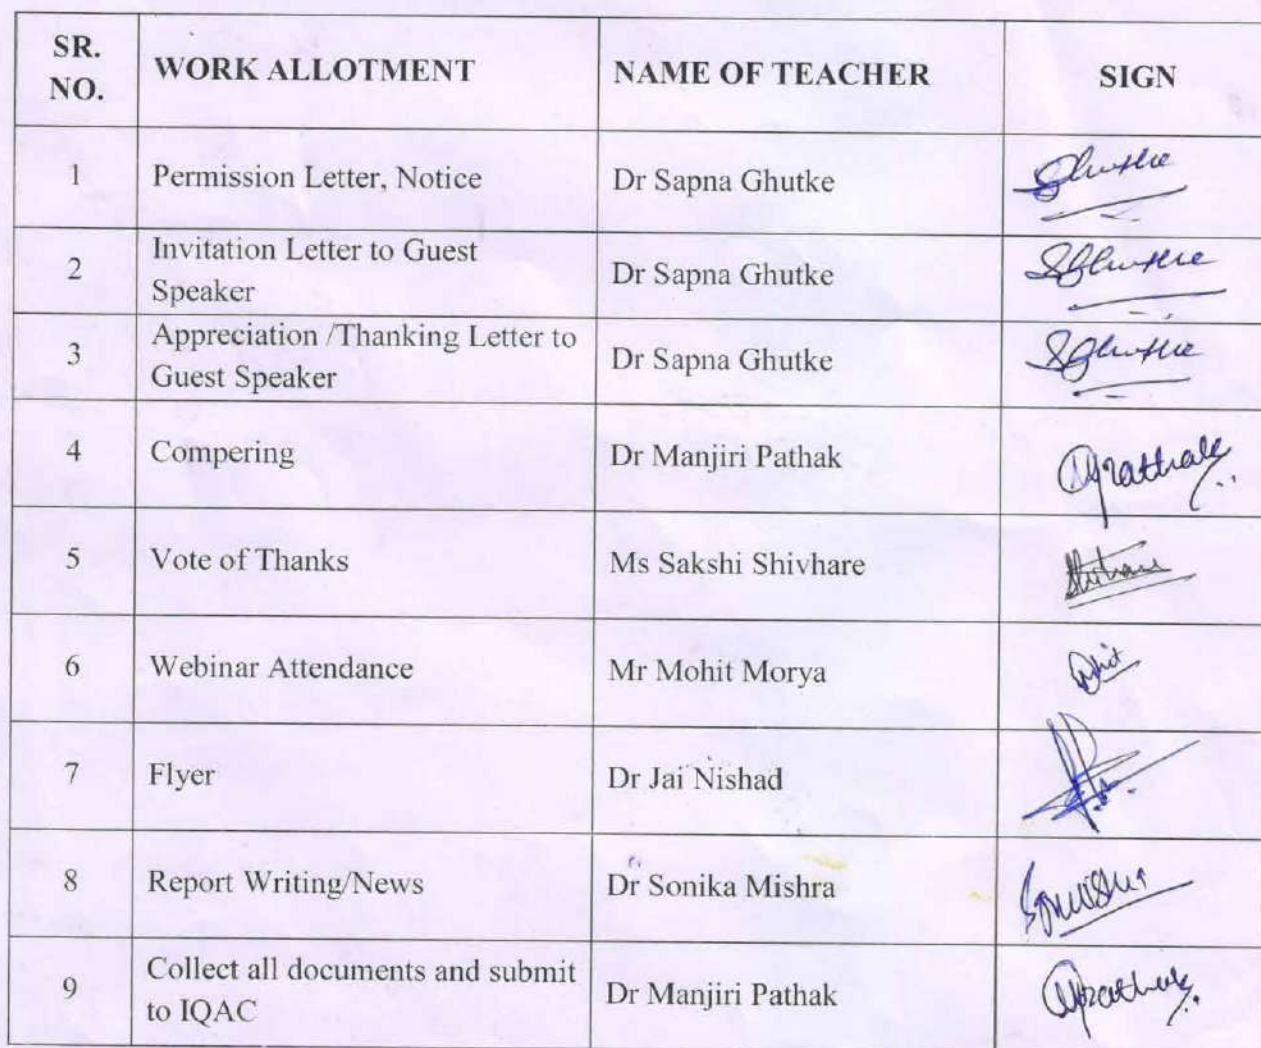 SR. NO. WORK ALLOTMENT NAME OF TEACHER SIGN
1 Permission Letter, Notice Dr Sapna Ghutke SGhutke
2 Invitation Letter to Guest Speaker Dr Sapna Ghutke SGhutke
3 Appreciation /Thanking Letter to Guest Speaker Dr Sapna Ghutke SGhutke
4 Compering Dr Manjiri Pathak
5 Vote of Thanks Ms Sakshi Shivhare
6 Webinar Attendance Mr Mohit Morya
7 Flyer Dr Jai Nishad
8 Report Writing/News Dr Sonika Mishra
9 Collect all documents and submit to IQAC Dr Manjiri Pathak